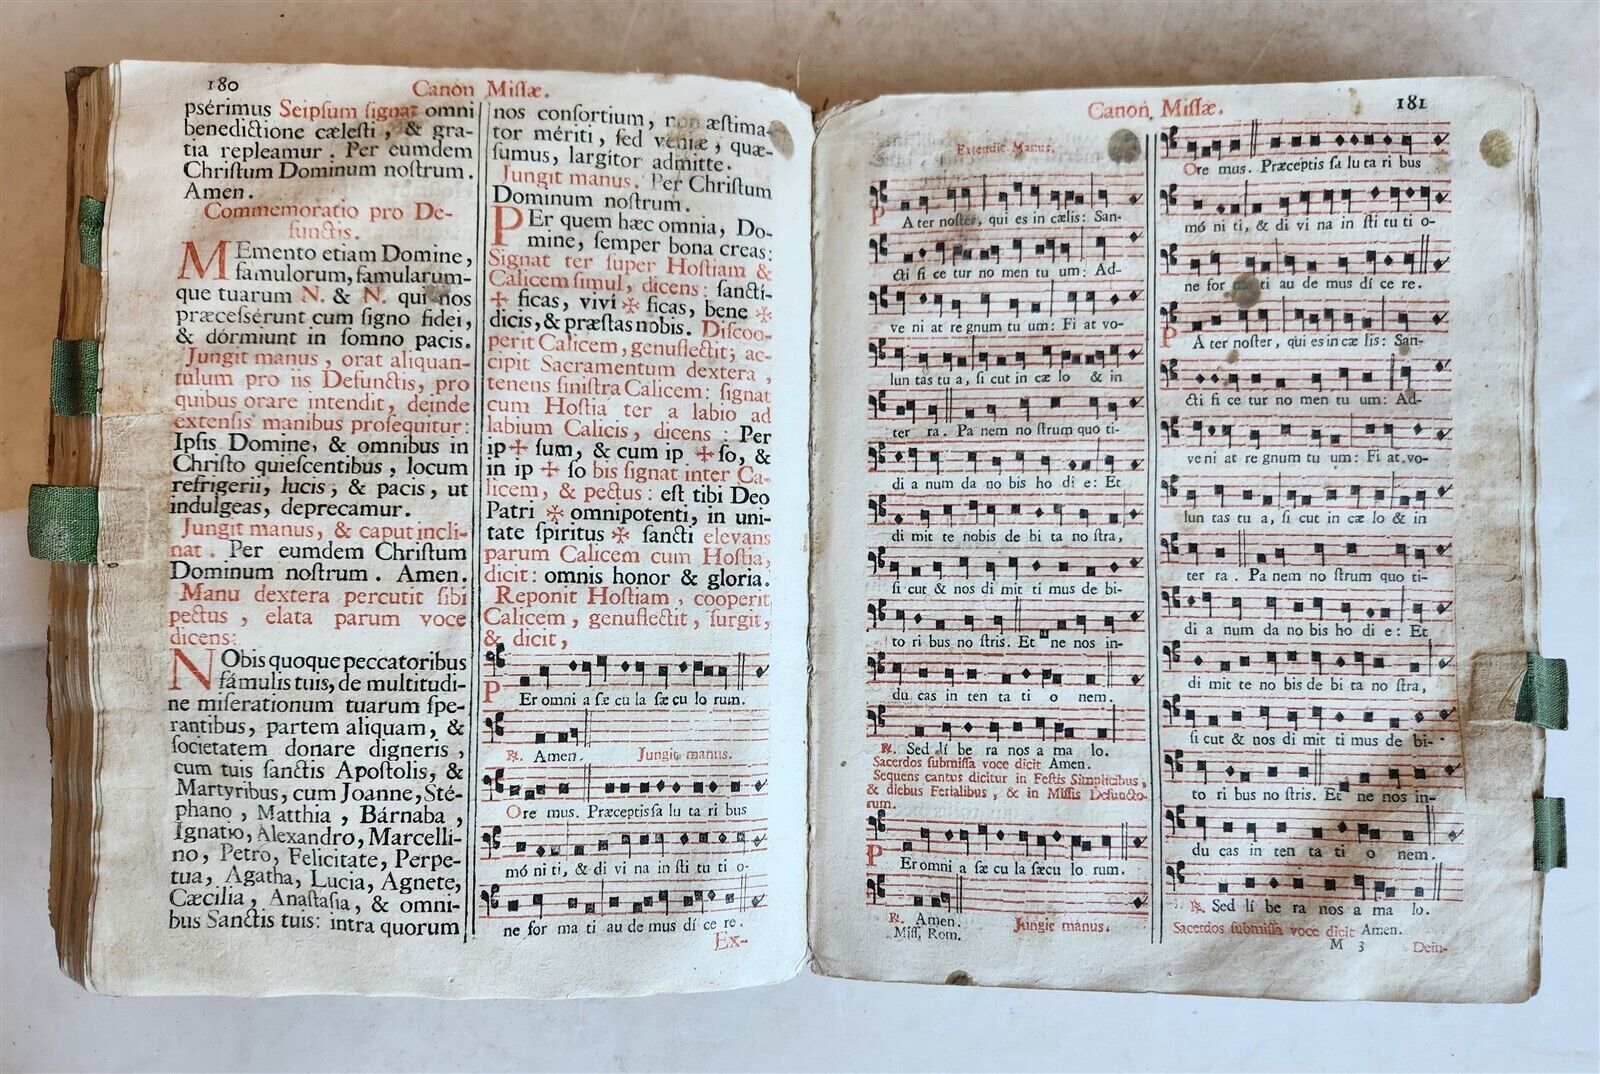 180
Canon Missæ.
psérimus Seipsum signat omni
benedictione cælesti, & gra-
tia repleamur. Per eumdem
Christum Dominum nostrum.
Amen.
Commemoratio pro De-
functis.
MEmento etiam Domine,
famulorum, famularum-
que tuarum N. & N. qui nos
præcessérunt cum signo fidei,
& dórmiunt in somno pacis.
Jungit manus, orat aliquan-
tulum pro iis Defunctis, pro
quibus orare intendit, deinde
extensis manibus prosequitur:
Ipsis Domine, & omnibus in
Christo quiescentibus, locum
refrigerii, lucis, & pacis, ut
indulgeas, deprecamur.
Jungit manus, & caput incli-
nat. Per eumdem Christum
Dominum nostrum. Amen.
Manu dextera percutit sibi
pectus, elata parum voce
dicens:
NObis quoque peccatoribus
fámulis tuis, de multitudi-
ne miserationum tuarum spe-
rantibus, partem aliquam, &
societatem donare digneris,
cum tuis sanctis Apostolis, &
Martyribus, cum Joanne, Sté-
phano, Matthia, Bárnaba,
Ignatio, Alexandro, Marcelli-
no, Petro, Felicitate, Perpe-
tua, Agatha, Lucia, Agnete,
Cæcilia, Anastasia, & omni-
bus Sanctis tuis: intra quorum
nos consortium, non æstima-
tor mériti, sed véniæ, quæ-
sumus, largitor admitte.
Jungit manus. Per Christum
Dominum nostrum.
PEr quem hæc omnia, Do-
mine, semper bona creas:
Signat ter super Hostiam &
Calicem simul, dicens: sancti-
✠ ficas, viví ✠ ficas, bene ✠
dicis, & præstas nobis. Discoo-
perit Calicem, genuflectit, ac-
cipit Sacramentum dextera,
tenens sinistra Calicem: signat
cum Hostia ter a labio ad
labium Calicis, dicens: Per
ip ✠ sum, & cum ip ✠ so, &
in ip ✠ so bis signat inter Ca-
licem, & pectus: est tibi Deo
Patri ✠ omnipotenti, in uni-
tate spiritus ✠ sancti elevans
parum Calicem cum Hostia,
dicit: omnis honor & gloria.
Reponit Hostiam, cooperit
Calicem, genuflectit, surgit,
& dicit,
PEr omni a sæ cu la sæ cu lo rum.
℟. Amen. Jungit manus.
Ore mus. Præceptis sa lu ta ri bus
mó ni ti, & di vi na in sti tu ti o-
ne for ma ti au de mus dí ce re.
Ex-
Canon Missæ.
181
Extendit Manus.
PAter noster, qui es in cælis: San-
cti fi ce tur no men tu um: Ad-
ve ni at re gnum tu um: Fi at vo-
lun tas tu a, si cut in cæ lo & in
ter ra. Pa nem no strum quo ti-
di a num da no bis ho di e: Et
di mit te nobis de bi ta no stra,
si cut & nos di mit ti mus de bi-
to ri bus no stris. Et ne nos in-
du cas in ten ta ti o nem.
℟. Sed lí be ra nos a ma lo.
Sacerdos submissa voce dicit Amen.
Sequens cantus dicitur in Festis Simplicibus,
& diebus Ferialibus, & in Missis Defuncto-
rum.
PEr omni a sæ cu la sæcu lo rum.
℟. Amen. Jungit manus.
Miss. Rom.
Ore mus. Præceptis sa lu ta ri bus
mó ni ti, & di vi na in sti tu ti o-
ne for ma ti au de mus dí ce re.
PAter noster, qui es in cæ lis: San-
cti fi ce tur no men tu um: Ad-
ve ni at re gnum tu um: Fi at vo-
lun tas tu a, si cut in cæ lo & in
ter ra. Pa nem no strum quo ti-
di a num da no bis ho di e: Et
di mit te no bis de bi ta no stra,
si cut & nos di mit ti mus de bi-
to ri bus no stris. Et ne nos in-
du cas in ten ta ti o nem.
℟. Sed lí be ra nos a ma lo.
Sacerdos submissa voce dicit Amen.
M 3 Dein-